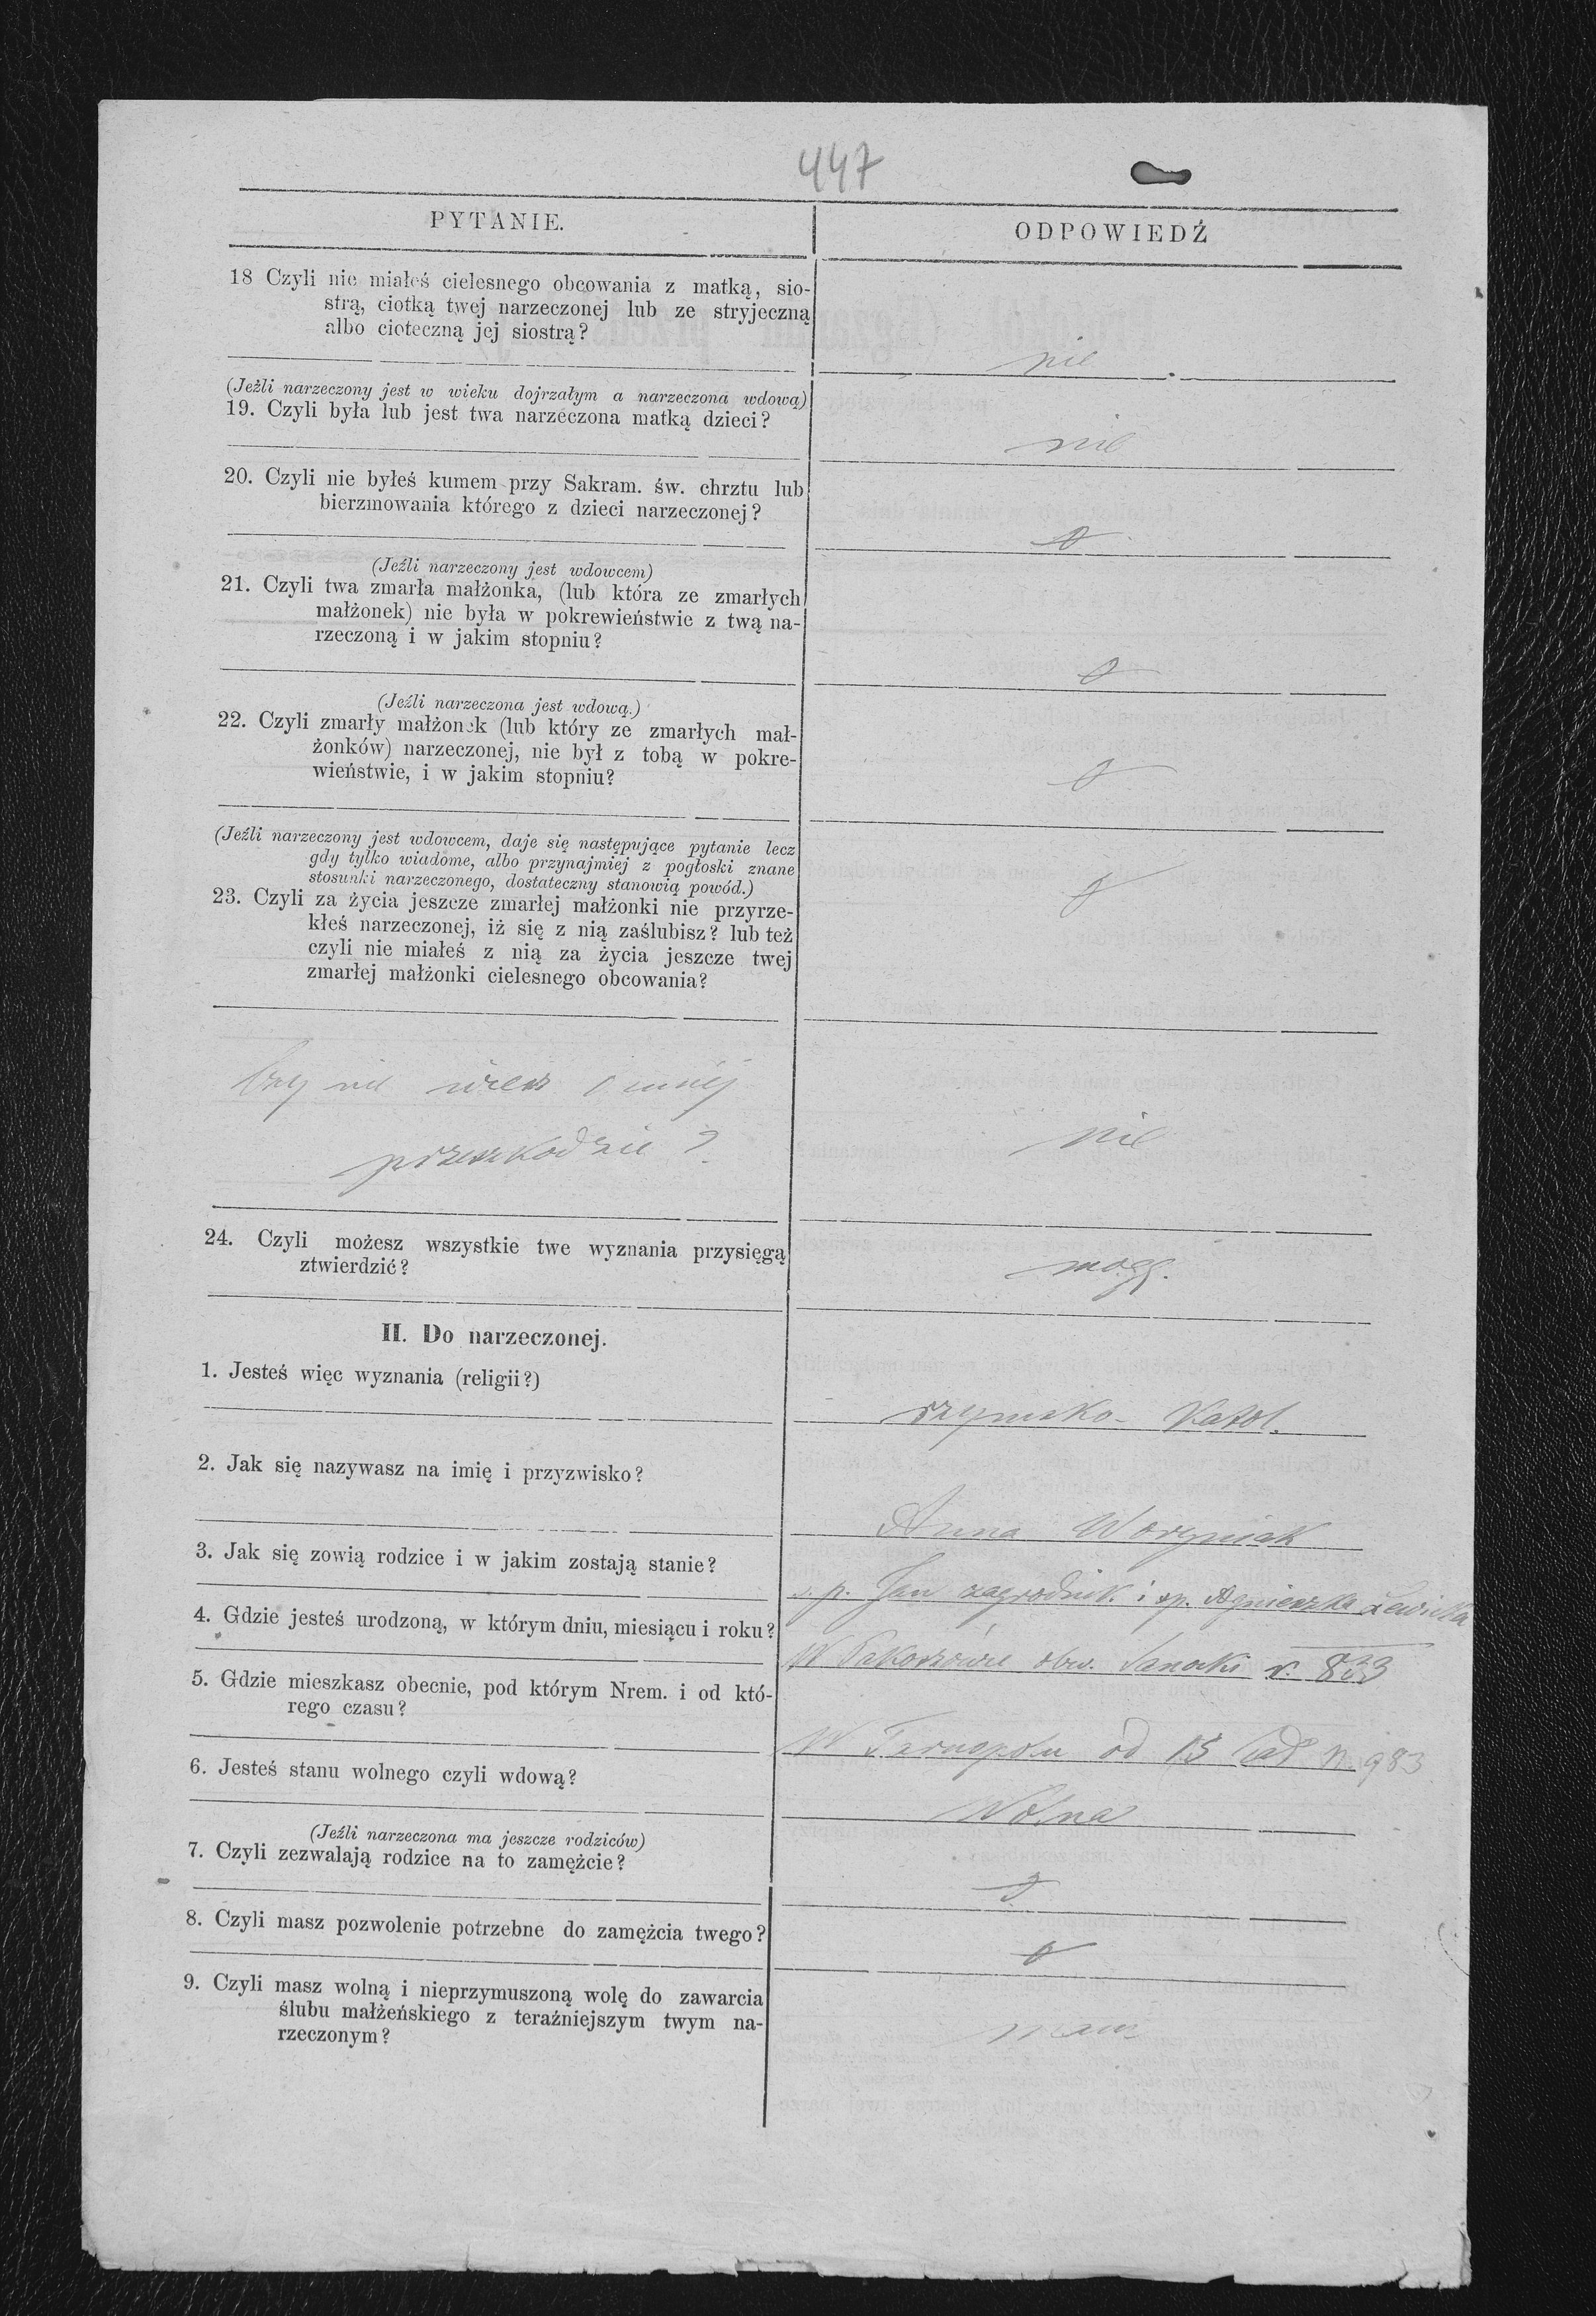 447
PYTANIE.
ODPOWIEDŹ
18 Czyli nie miałeś cielesnego obcowania z matką, sio-
strą, ciotką twej narzeczonej lub ze stryjeczną
albo cioteczną jej siostrą?
nie
(Jeźli narzeczony jest w wieku dojrzałym a narzeczona wdową)
19. Czyli była lub jest twa narzeczona matką dzieci?
nie
20. Czyli nie byłeś kumem przy Sakram. św. chrztu lub
bierzmowania którego z dzieci narzeczonej?
(Jeźli narzeczony jest wdowcem)
21. Czyli twa zmarła małżonka, (lub która ze zmarłych
małżonek) nie była w pokrewieństwie z twą na-
rzeczoną i w jakim stopniu?
(Jeźli narzeczona jest wdową.)
22. Czyli zmarły małżonek (lub który ze zmarłych mał-
żonków) narzeczonej, nie był z tobą w pokre-
wieństwie, i w jakim stopniu?
(Jeźli narzeczony jest wdowcem, daje się następujące pytanie lecz
gdy tylko wiadome, albo przynajmiej z pogłoski znane
stosunki narzeczonego, dostateczny stanowią powód.)
23. Czyli za życia jeszcze zmarłej małżonki nie przyrze-
kłeś narzeczonej, iż się z nią zaślubisz? lub też
czyli nie miałeś z nią za życia jeszcze twej
zmarłej małżonki cielesnego obcowania?
Czy nie wiesz o innéj
przeszkodzie?
nie
24. Czyli możesz wszystkie twe wyznania przysięgą
ztwierdzić?
mogę.
II. Do narzeczonej.
1. Jesteś więc wyznania (religii?)
rzymsko-Katol.
2. Jak się nazywasz na imię i przyzwisko?
Anna Woryniak
3. Jak się zowią rodzice i w jakim zostają stanie?
ś. p. Jan zagrodnik i śp. Agnieszka Lewicka
4. Gdzie jesteś urodzoną, w którym dniu, miesiącu i roku?
W Pakoszówce obw. Sanocki r. 833
5. Gdzie mieszkasz obecnie, pod którym Nrem. i od któ-
rego czasu?
W Tarnopolu od 15 lat N. 983
6. Jesteś stanu wolnego czyli wdową?
Wolna
(Jeźli narzeczona ma jeszcze rodziców)
7. Czyli zezwalają rodzice na to zamężcie?
8. Czyli masz pozwolenie potrzebne do zamężcia twego?
9. Czyli masz wolną i nieprzymuszoną wolę do zawarcia
ślubu małżeńskiego z teraźniejszym twym na-
rzeczonym?
mam